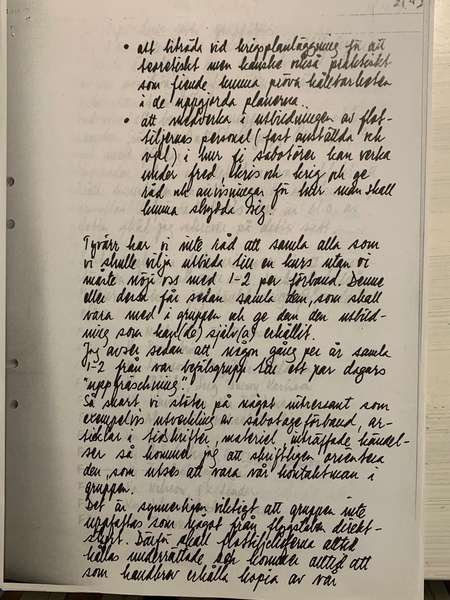 2(4)
• att biträda vid krigsplanläggning för att
teoretiskt men kanske också praktiskt
som fiende kunna pröva hållbarheten
i de uppgjorda planerna.
• att medverka i utbildningen av flot-
tiljernas personal (fast anställda och
vpl) i hur fi sabotörer kan verka
under fred, kris och krig och ge
råd och anvisningar för hur man skall
kunna skydda sig.
Tyvärr har vi inte råd att samla alla som
vi skulle vilja utbilda till en kurs utan vi
måste nöja oss med 1-2 per förband. Denne
eller dessa får sedan samla dem, som skall
vara med i gruppen och ge dem den utbild-
ning som han(de) själv(a) erhållit.
Jag avser sedan att någon gång per år samla
1-2 från var befälsgrupp till ett par dagars
"uppfräschning".
Så snart vi stöter på något intressant som
exempelvis utveckling av sabotageförband, ar-
tiklar i tidskrifter, materiel, inträffade händel-
ser så kommer jag att skriftligen orientera
den, som utses att vara vår kontaktman i
gruppen.
Det är synnerligen viktigt att gruppen inte
uppfattas som något från flygstaben direkt-
styrt. Därför skall flottiljcheferna alltid
hållas underrättade och kommer alltid att
som handbrev erhålla kopia av vår